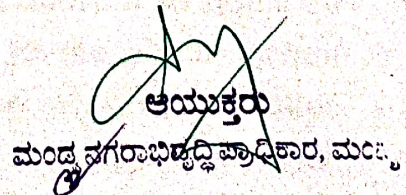 ಆಯುಕ್ತರು
ಮಂಡ್ಯ ನಗರಾಭಿವೃದ್ಧಿ ಪ್ರಾಧಿಕಾರ, ಮಂಡ್ಯ